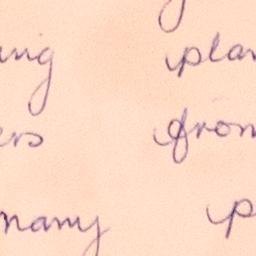 ing plan
ers from
many p